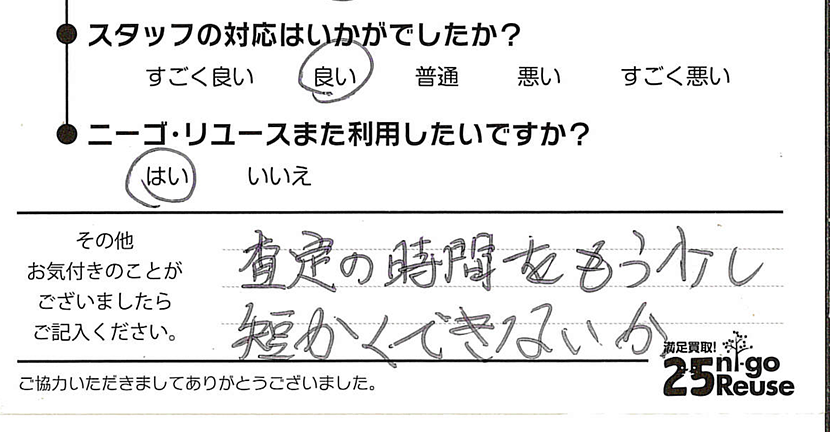 ●スタッフの対応はいかがでしたか?
すごく良い 良い 普通 悪い すごく悪い
●ニーゴ・リユースまた利用したいですか?
はい いいえ
その他
お気付きのことが
ございましたら
ご記入ください。
査定の時間をもう少し
短かくできないか
満足買取!
25 ni-go
Reuse
ご協力いただきましてありがとうございました。